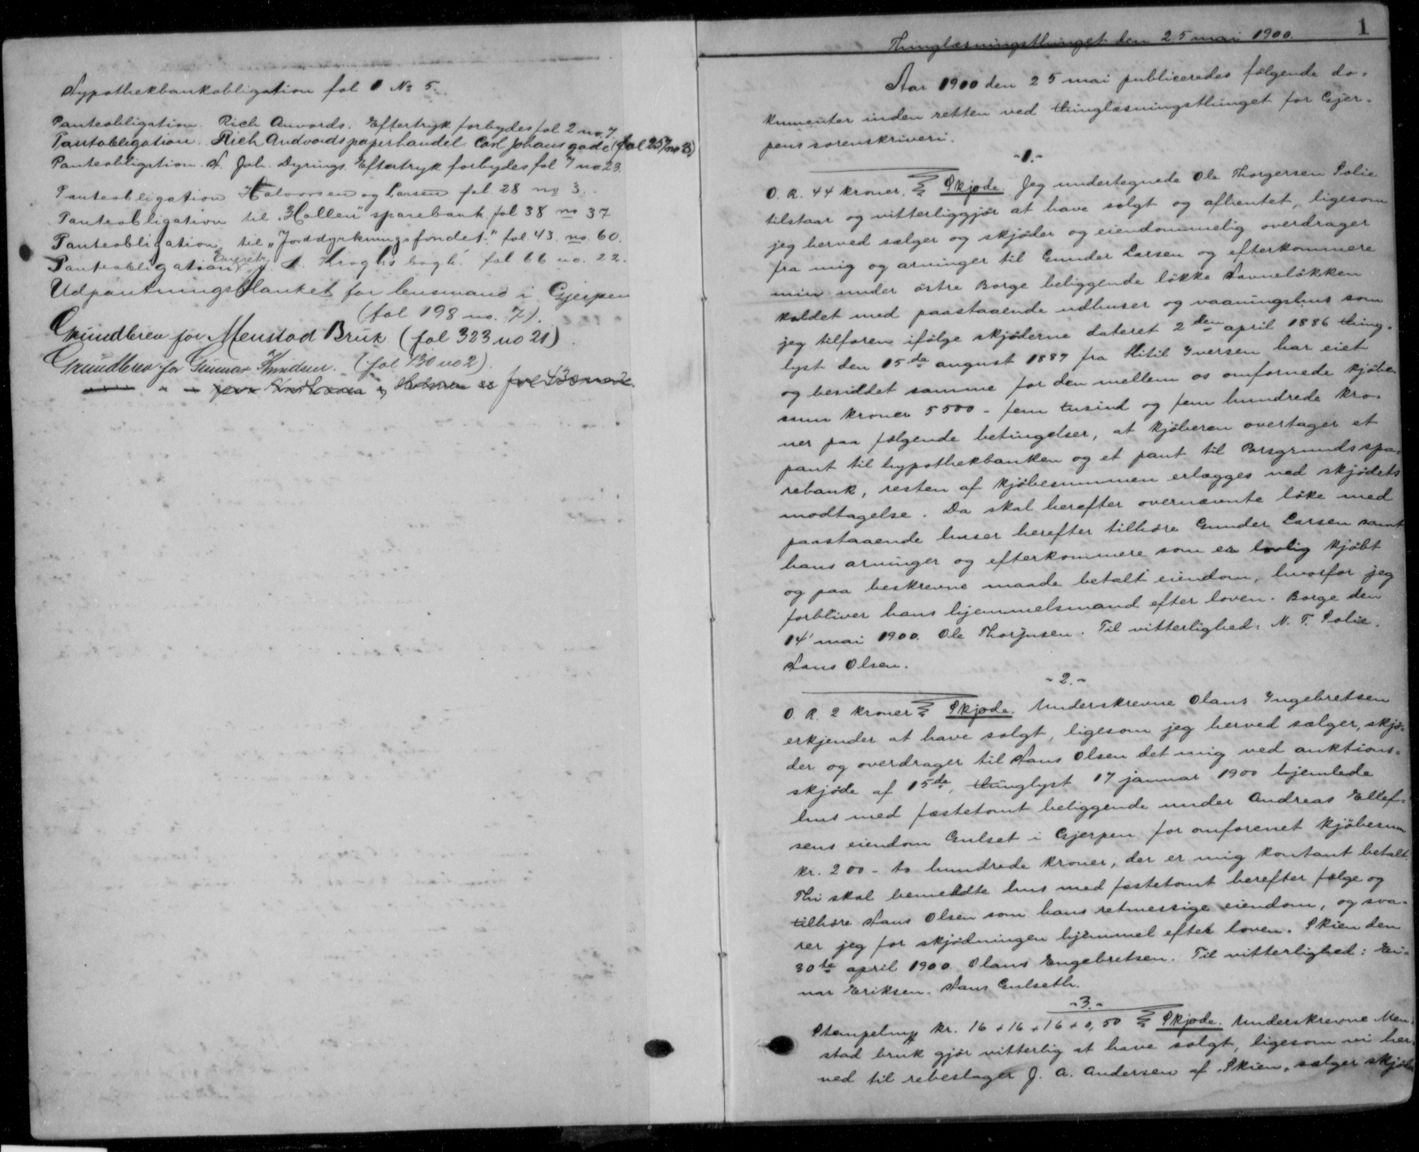 Hypothekbankobligation fol 1 No 5.
Panteobligation. Rich Anvords. Eftertryk forbydes fol 2 no 7
Pantobligation. Rich Andvords papirhandel Carl Johans gade (fol 257 no 8)
Panteobligation. S. Joh. Dyrings Eftertryk forbydes fol 7 no 23.
Panteobligation Halvorsen og Larsen fol 28 no 3.
Panteobligation til "Hollen" sparebank fol 38 no 37
Panteobligation til "Jorddyrkningsfondet." fol 43. no 60.
Panteobligation Kroghs bogh. fol 66 no. 22.
Udpantningsblanket for lensmand i Gjerpen
(fol 198 no. 7).
Grundbrev for Menstad Bruk (fol 323 no 21)
Grundbrev for Gunnar Knudsen. (fol 130 no 2)
Thinglæsningsthinget den 25 mai 1900. 1
Aar 1900 den 25 mai publiceredes følgende do-
kumenter inden retten ved thinglæsningsthinget for Gjer-
pens sorenskriveri.
-1.-
O. R. 44 kroner. Skjøde. Jeg undertegnede Ole Thorgersen Solie
tilstaar og vitterliggjør at have solgt og afhentet, ligesom
jeg herved sælger og skjøder og eiendommelig overdrager
fra mig og arvinger til Gunder Larsen og efterkommere
min under østre Borge beliggende løkke Havneløkken
kaldet med paastaaende udhuser og vaaningshus som
jeg tilforen ifølge skjøderne dateret 2den april 1886 thing-
lyst den 15de august 1887 fra Kitil Iversen har eiet
og besiddet samme for den mellem os omforenede kjøbe-
sum kroner 5500 - fem tusind og fem hundrede kro-
ner paa følgende betingelser, at kjøberen overtager et
pant til hypothekbanken og et pant til Borgrunds spa-
rebank, resten af kjøbesummen erlægges ved skjødets
modtagelse. Da skal herefter overnævnte løke med
paastaaende huser herefter tilhøre Gunder Larsen samt
hans arvinger og efterkommere som en lovlig kjøbt
og paa beskrevne maade betalt eiendom, hvorfor jeg
forbliver hans hjemmelsmand efter loven. Borge den
14' mai 1900. Ole Thorjusen. Til vitterlighed: N. T. Solie.
Hans Olsen.
-2.-
O. R. 2 kroner Skjøde. Underskrevne Olaus Ingebretsen
erkjender at have solgt, ligesom jeg herved sælger, skjø-
der og overdrager til Hans Olsen det mig ved auktions-
skjøde af 15de, thinglyst 17 januar 1900 hjemlede
hus med fæstetomt beliggende under Andreas Ellef-
sens eiendom Gulset i Gjerpen for omforenet kjøbesum
kr. 200 - to hundrede kroner, der er mig kontant betalt.
Thi skal bemeldte hus med fæstetomt herefter følge og
tilhøre Hans Olsen som hans retmessige eiendom, og sva-
rer jeg for skjødningen hjemmel efter loven. Skien den
30te april 1900. Olaus Engebretsen. Til vitterlighed: Ei-
nar Eriksen. Hans Gulseth.
-3.-
Stempelmg kr. 16+16+16+0,50 Skjøde. Underskrevne Men-
stad bruk gjør vitterlig at have solgt, ligesom vi her-
ved til rebeslager J. A. Andersen af Skien, sælger skjø